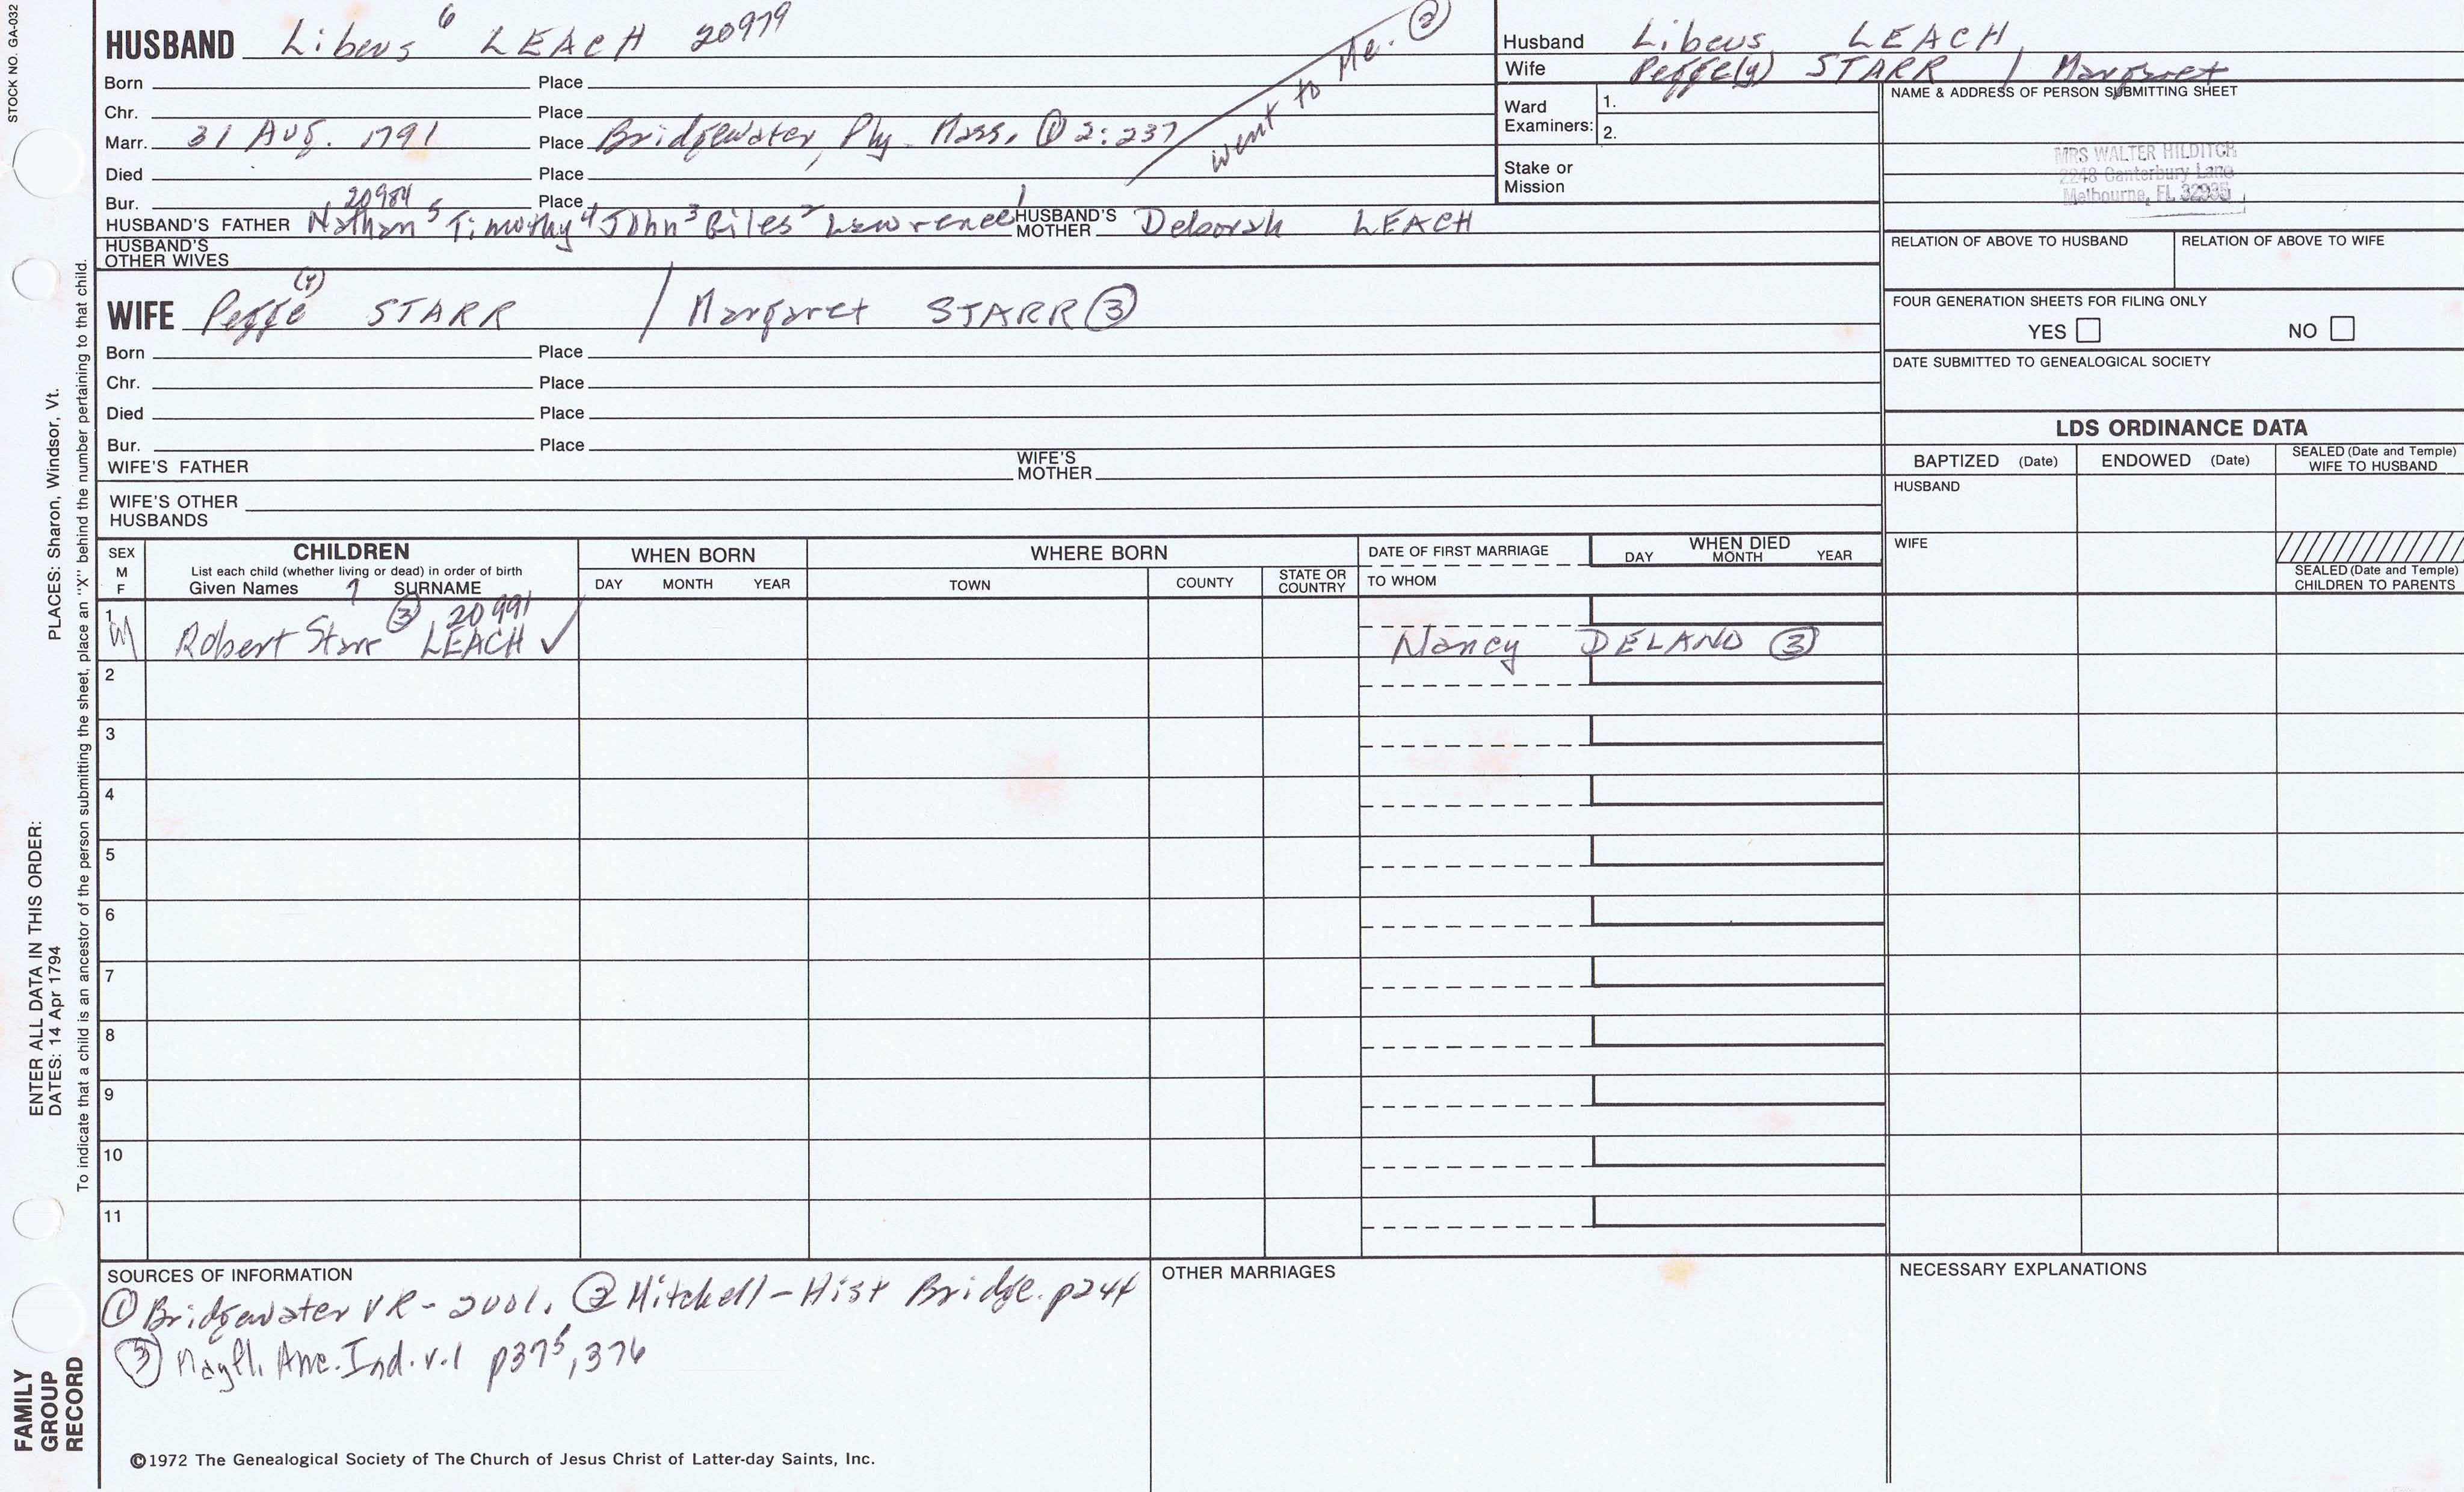 STOCK NO. GA-032
HUSBAND Libeus 6 LEACH 20979
Born Place
Chr. Place
Marr. 31 Aug. 1791 Place Bridgewater, Ply Mass. ① 2:237
went to Me. ②
Died Place
Bur. Place
20984
HUSBAND'S FATHER Nathan 5 Timothy 4 John 3 Giles 2 Lawrence 1 HUSBAND'S MOTHER Deborah LEACH
HUSBAND'S OTHER WIVES
WIFE Pegge (y) STARR / Margaret STARR ③
Born Place
Chr. Place
Died Place
Bur. Place
WIFE'S FATHER WIFE'S MOTHER
WIFE'S OTHER HUSBANDS
Husband Libeus, LEACH,
Wife Pegge(y) STARR / Margaret
Ward Examiners: 1.
2.
Stake or Mission
NAME & ADDRESS OF PERSON SUBMITTING SHEET
MRS WALTER HILDITCH
2248 Canterbury Lane
Melbourne, FL 32935
RELATION OF ABOVE TO HUSBAND RELATION OF ABOVE TO WIFE
FOUR GENERATION SHEETS FOR FILING ONLY
YES NO
DATE SUBMITTED TO GENEALOGICAL SOCIETY
LDS ORDINANCE DATA
BAPTIZED (Date) ENDOWED (Date) SEALED (Date and Temple) WIFE TO HUSBAND
HUSBAND
WIFE
SEALED (Date and Temple) CHILDREN TO PARENTS
SEX M F
CHILDREN
List each child (whether living or dead) in order of birth
Given Names 7 SURNAME
WHEN BORN
DAY MONTH YEAR
WHERE BORN
TOWN COUNTY STATE OR COUNTRY
DATE OF FIRST MARRIAGE
TO WHOM
WHEN DIED
DAY MONTH YEAR
1 M Robert Starr ③ LEACH 20991 ✓ Nancy DELAND ③
2
3
4
5
6
7
8
9
10
11
SOURCES OF INFORMATION
① Bridgewater VR - 2vol. ② Mitchell - Hist Bridge. p244
③ Mayfl. Anc. Ind. v.1 p375, 376
OTHER MARRIAGES
NECESSARY EXPLANATIONS
©1972 The Genealogical Society of The Church of Jesus Christ of Latter-day Saints, Inc.
FAMILY GROUP RECORD
ENTER ALL DATA IN THIS ORDER:
DATES: 14 Apr 1794
PLACES: Sharon, Windsor, Vt.
To indicate that a child is an ancestor of the person submitting the sheet, place an "X" behind the number pertaining to that child.